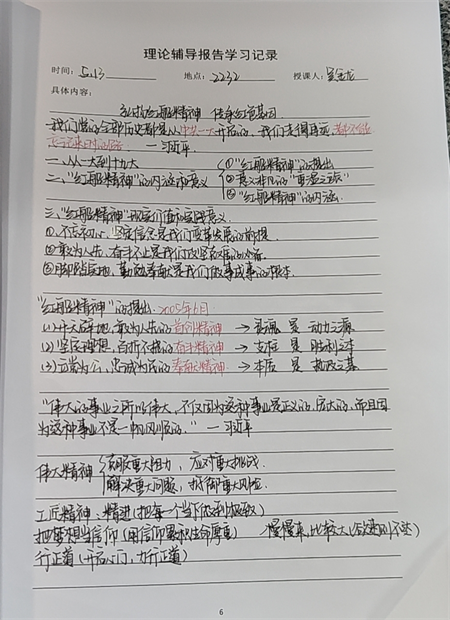 理论辅导报告学习记录
时间：5.13 地点：2232 授课人：吴金龙
具体内容：
弘扬红船精神 传承红色基因
我们党的全部历史都是从中共一大开启的，我们走得再远都不能
忘记来时的路 —习近平
一、从一大到十九大
二、"红船精神"的内涵和意义
①"红船精神"的提出
②意义非凡的"重温之旅"
③"红船精神"的内涵
三、"红船精神"的定价值和实践意义
①不忘初心，坚定信念是我们改革发展的前提
②敢为人先，奋斗不止是我们攻坚克难的
③脚踏实地，勤勉奉献是我们做事成事的根本
"红船精神"的提出：2005年6月
(1)开天辟地，敢为人先的首创精神 → 是 动力之源
(2)坚定理想，百折不挠的奋斗精神 → 支柱 是 胜利之本
(3)立党为公，忠诚为民的奉献精神 → 本质 是 执政之基
"伟大的事业之所以伟大，不仅因为这种事业是正义的、宏大的，而且因
为这种事业不是一帆风顺的。" —习近平
伟大精神
克服重大阻力，应对重大挑战
解决重大问题，抵御重大风险
工匠精神：精进(把每一个当下做到极致)
把梦想当信仰(用信仰累积生命厚度) 慢慢来，比较大(欲速则不达)
行正道(开启心门，力行正道)
6